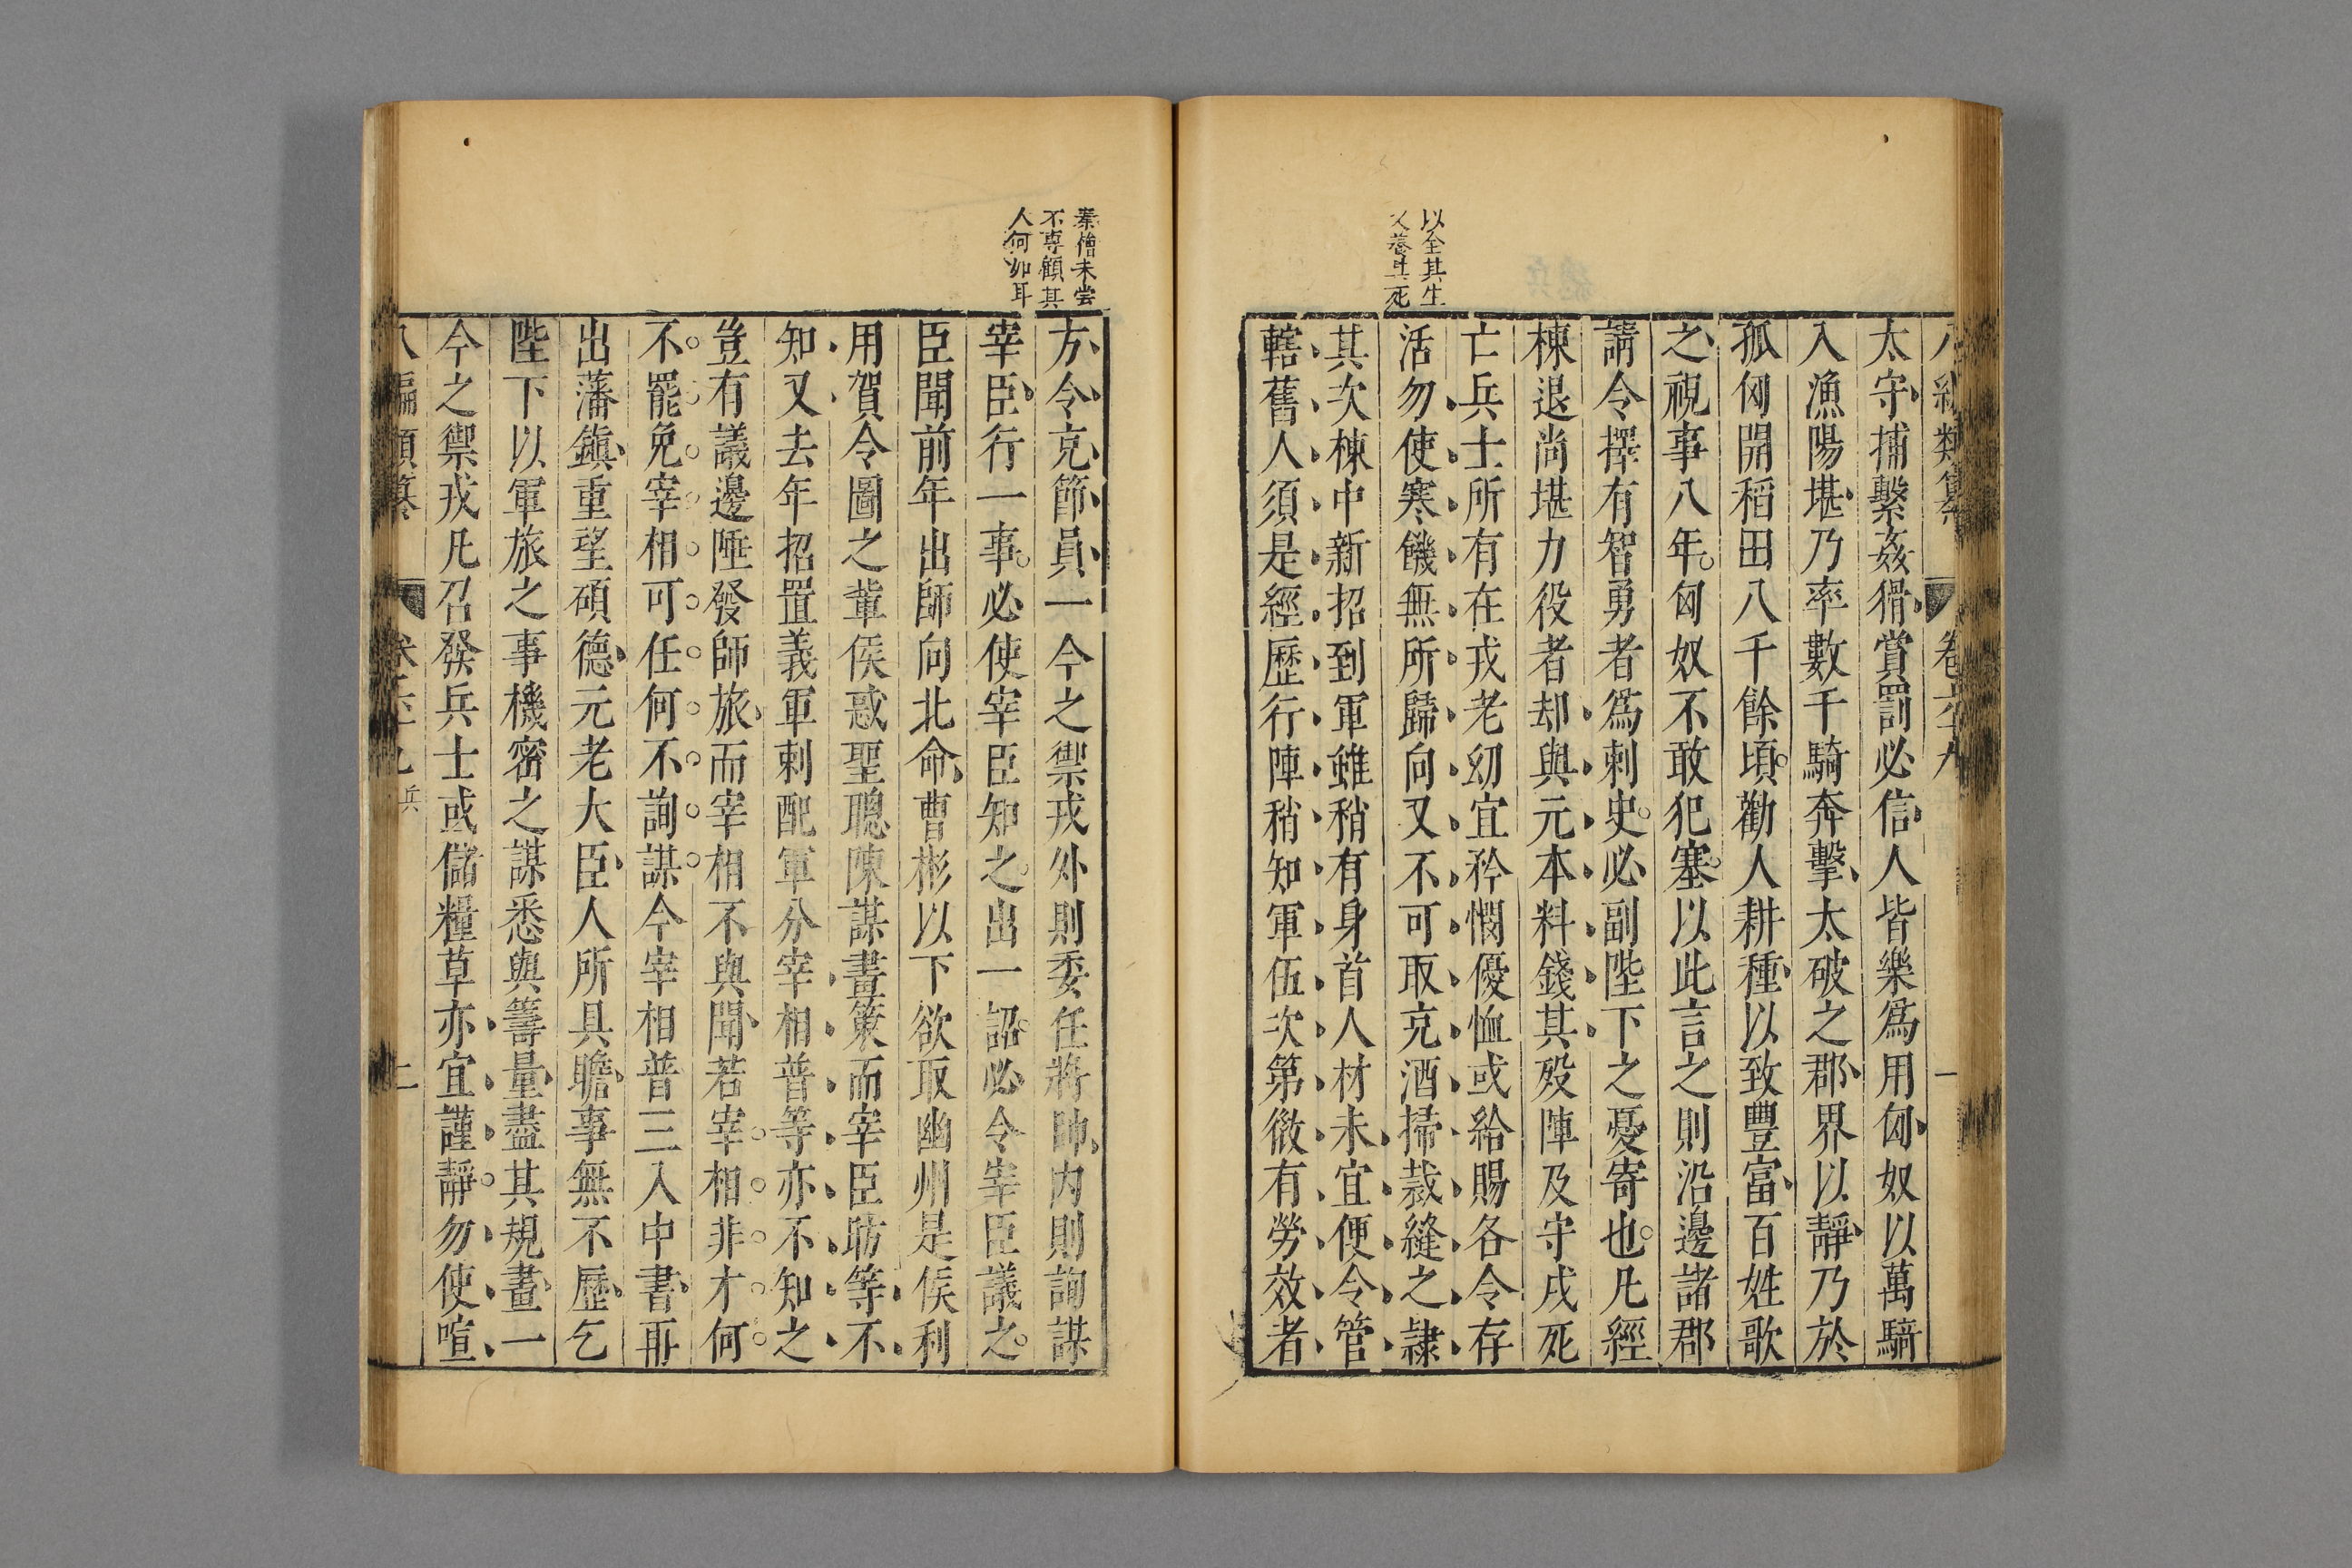 太守捕繫姦猾賞罰必信人皆樂爲用匈奴以萬騎
入漁陽堪乃率數千騎奔擊太破之郡界以靜乃於
孤匈開稻田八千餘頃勸人耕種以致豐富百姓歌
之視事八年匈奴不敢犯塞以此言之則沿邊諸郡
請令擇有智勇者爲刺史必副陛下之憂寄也凡經
棟退尚堪力役者却與元本料錢其殁陣及守戍死
亡兵士所有在戎老幼宜矜憫優恤或給賜各令存
活勿使寒饑無所歸向又不可取充酒掃裁縫之隷
其次棟中新招到軍雖稍有身首人材未宜便令管
轄舊人須是經歷行陣稍知軍伍次第微有勞效者
以全其生
又養其死
方令充節員一今之禦戎外則委任將帥內則詢謀
宰臣行一事必使宰臣知之出一詔必令宰臣議之
臣聞前年出師向北命曹彬以下欲取幽州是侯利
用賀令圖之輩侯惑聖聰陳謀畫策而宰臣昉等不
知又去年招置義軍刺配軍分宰相普等亦不知之
豈有議邊陲發師旅而宰相不與聞若宰相非才何
不罷免宰相可任何不詢謀今宰相普三入中書再
出藩鎮重望碩德元老大臣人所具瞻事無不歷乞
陛下以軍旅之事機密之謀悉與籌量盡其規畫一
今之禦戎凡召發兵士或儲糧草亦宜謹靜勿使喧
秦僧未嘗
不専顧其
人何如耳